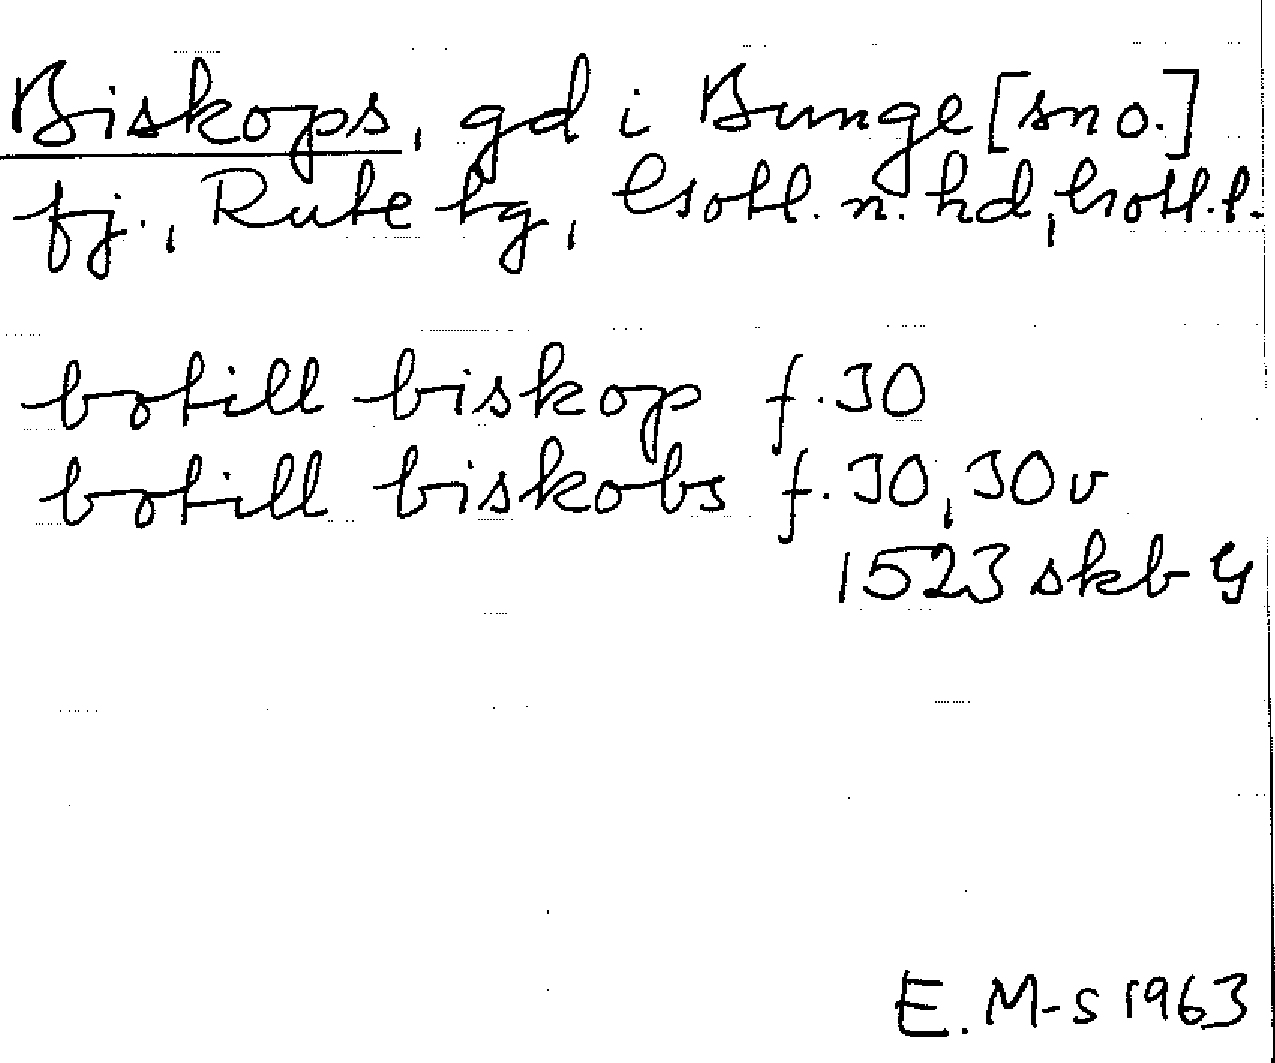 Biskops, gd i Bunge [sno.]
fj., Rute tg, Gotl. n. hd, Gotl. l.
botill biskop f. 30
botill biskobs f. 30, 30 v
1523 skb G
E. M-s 1963